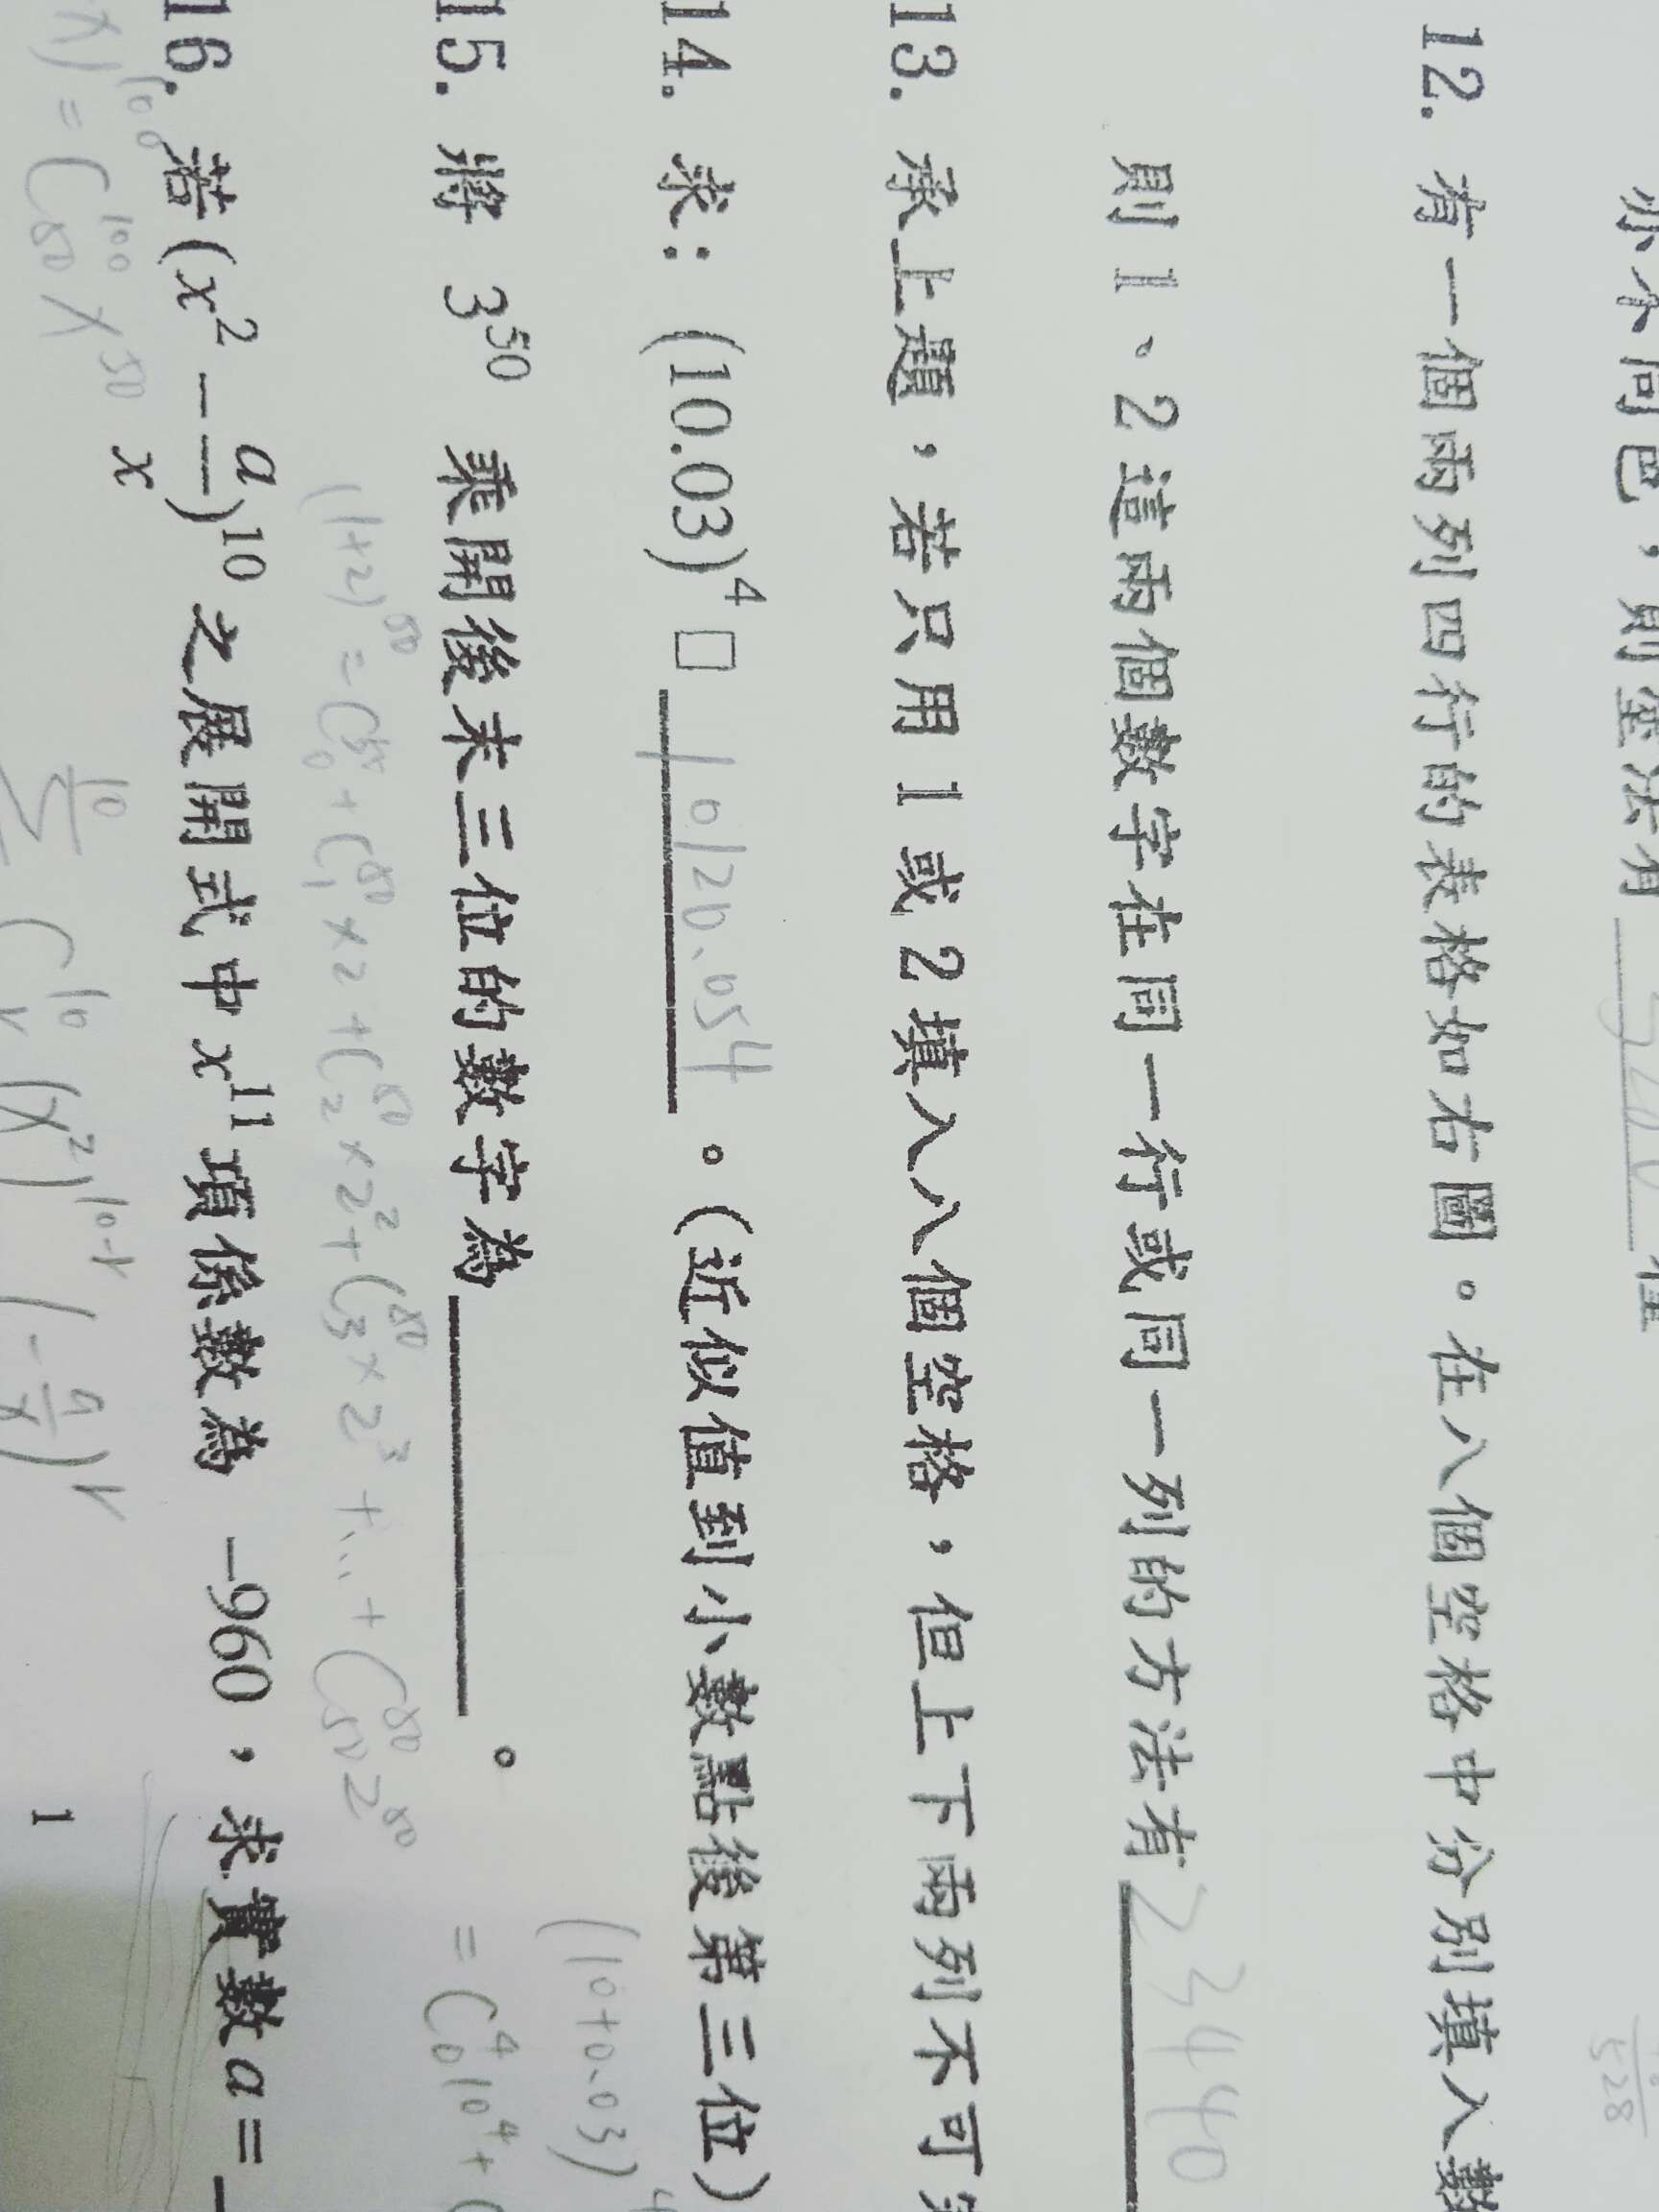 亦不同色，則塗法有 種
12. 有一個兩列四行的表格如右圖。在八個空格中分別填入數
則 1、2 這兩個數字在同一行或同一列的方法有 23440
13. 承上題，若只用 1 或 2 填入八個空格，但上下兩列不可
14. 求：(10.03)⁴ □ 10120.054 。(近似值到小數點後第三位)
(10+0.03)⁴
= C⁴₀10⁴ +
15. 將 3⁵⁰ 乘開後末三位的數字為 。
(1+2)⁵⁰ = C⁵⁰₀ + C⁵⁰₁ × 2 + C⁵⁰₂ × 2² + C⁵⁰₃ × 2³ + ... + C⁵⁰₅₀ 2⁵⁰
16. 若(x² − a/x)¹⁰ 之展開式中 x¹¹ 項係數為 −960，求實數 a =
x)¹⁰⁰ = C¹⁰⁰₅₀ x⁵⁰
C¹⁰ᵣ (x²)¹⁰⁻ʳ (− a/x)ʳ
1